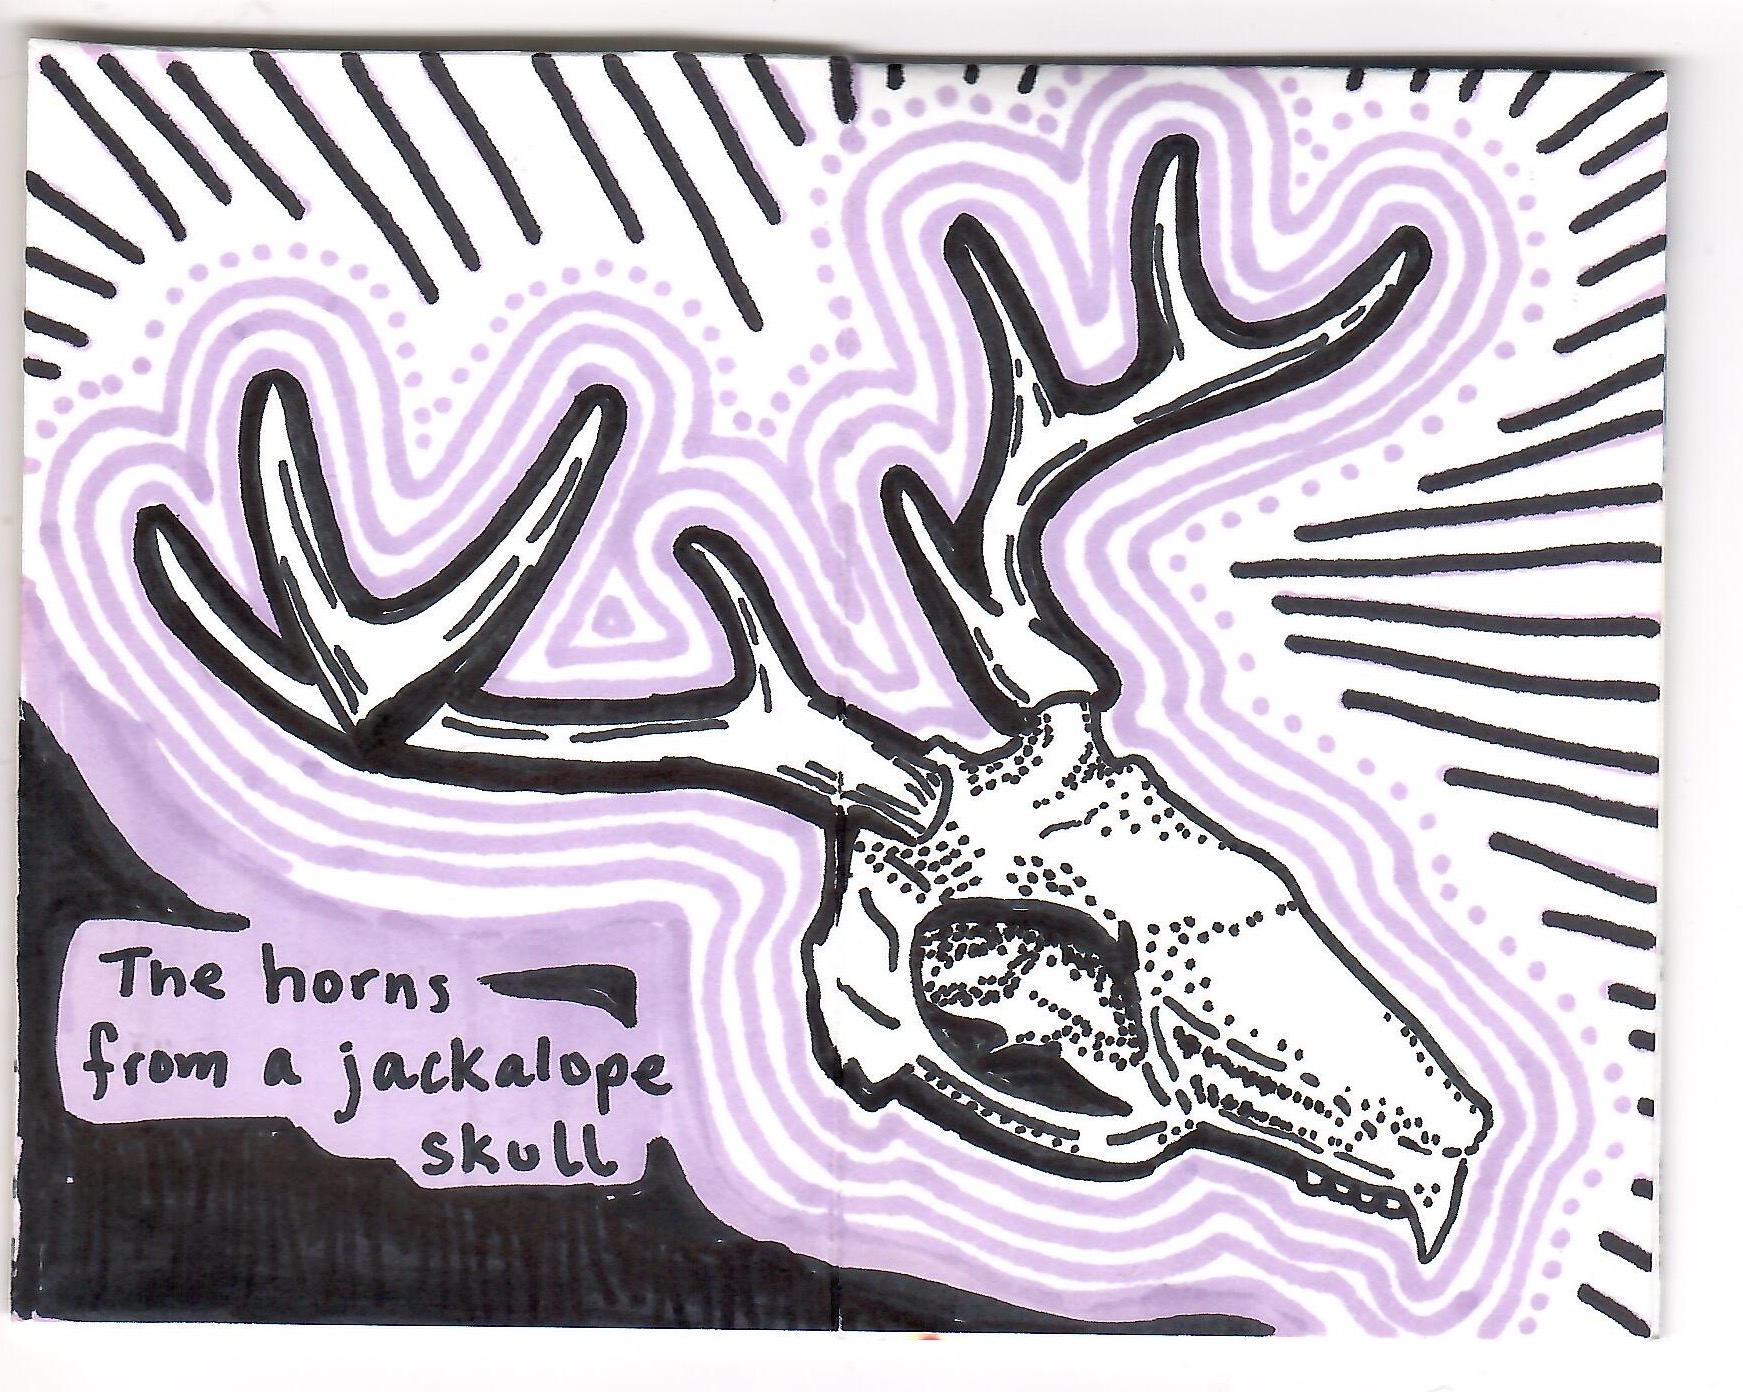 The horns
from a jackalope
skull